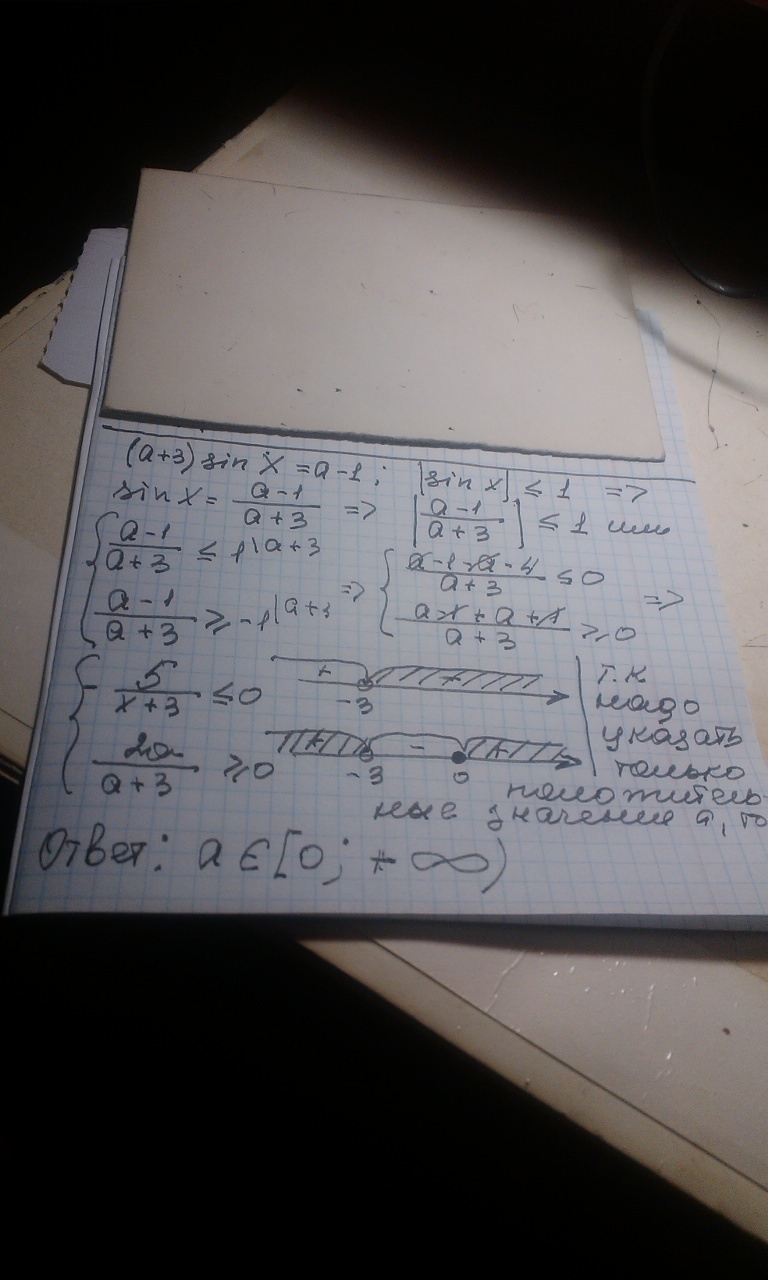 (a+3) sin x = a-1; |sin x| ≤ 1 =>
sin x = \frac{a-1}{a+3} => |\frac{a-1}{a+3}| ≤ 1 или
{ \frac{a-1}{a+3} ≤ 1 |a+3
\frac{a-1}{a+3} ≥ -1 |a+3
=> { \frac{a-1-a-4}{a+3} ≤ 0
\frac{a-1+a+1}{a+3} ≥ 0 =>
{ -\frac{5}{x+3} ≤ 0
+ -3 +
\frac{2a}{a+3} ≥ 0
+ -3 - 0 +
т.к
надо
указать
только
положитель-
ные значения a, то
Ответ: a ∈ [0; +∞)